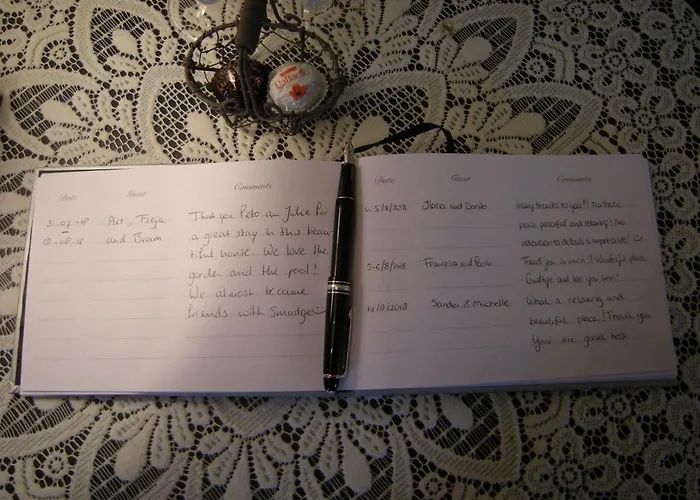 Date Guest Comments
and Bram
Thank you Peter an Julie for
a great stay in this beau-
tiful house. We love the
garden and the pool!
We almost became
friends with Smudge
Date Guest Comments
4-5/8/2018 Ilaria and Danilo Many thanks to you!!! Fantastic
place, peaceful and relaxing! The
attention to details is impressive!
5-6/8/2018 Francesca and Paolo Thank you so much! Wonderful place
Goodbye and see you soon!
14/8/2018 Sandra & Michelle What a relaxing and
beautiful place! Thank you
Your are great host.